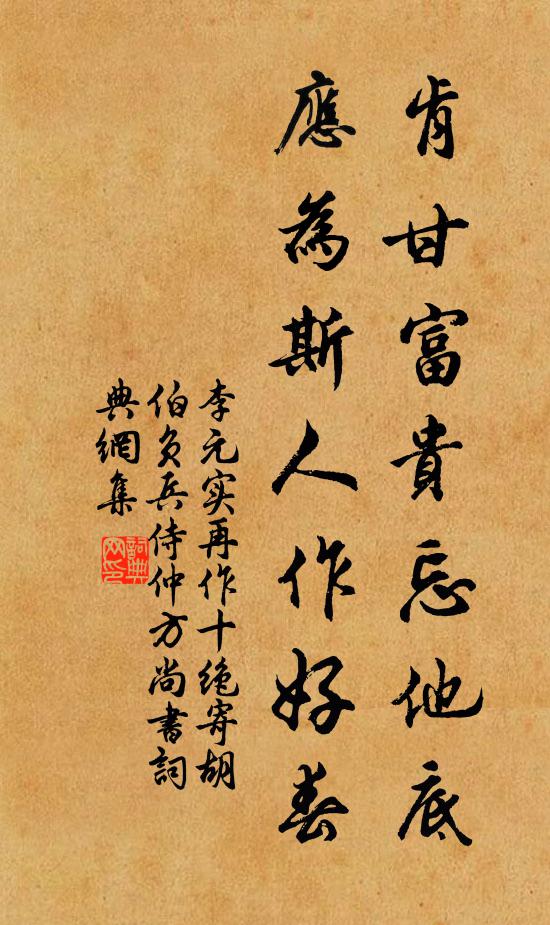 肯甘富貴忘他底
應為斯人作好春
李元实再作十绝寄胡
伯负兵侍仲方尚書詞
典網集
詞典網印